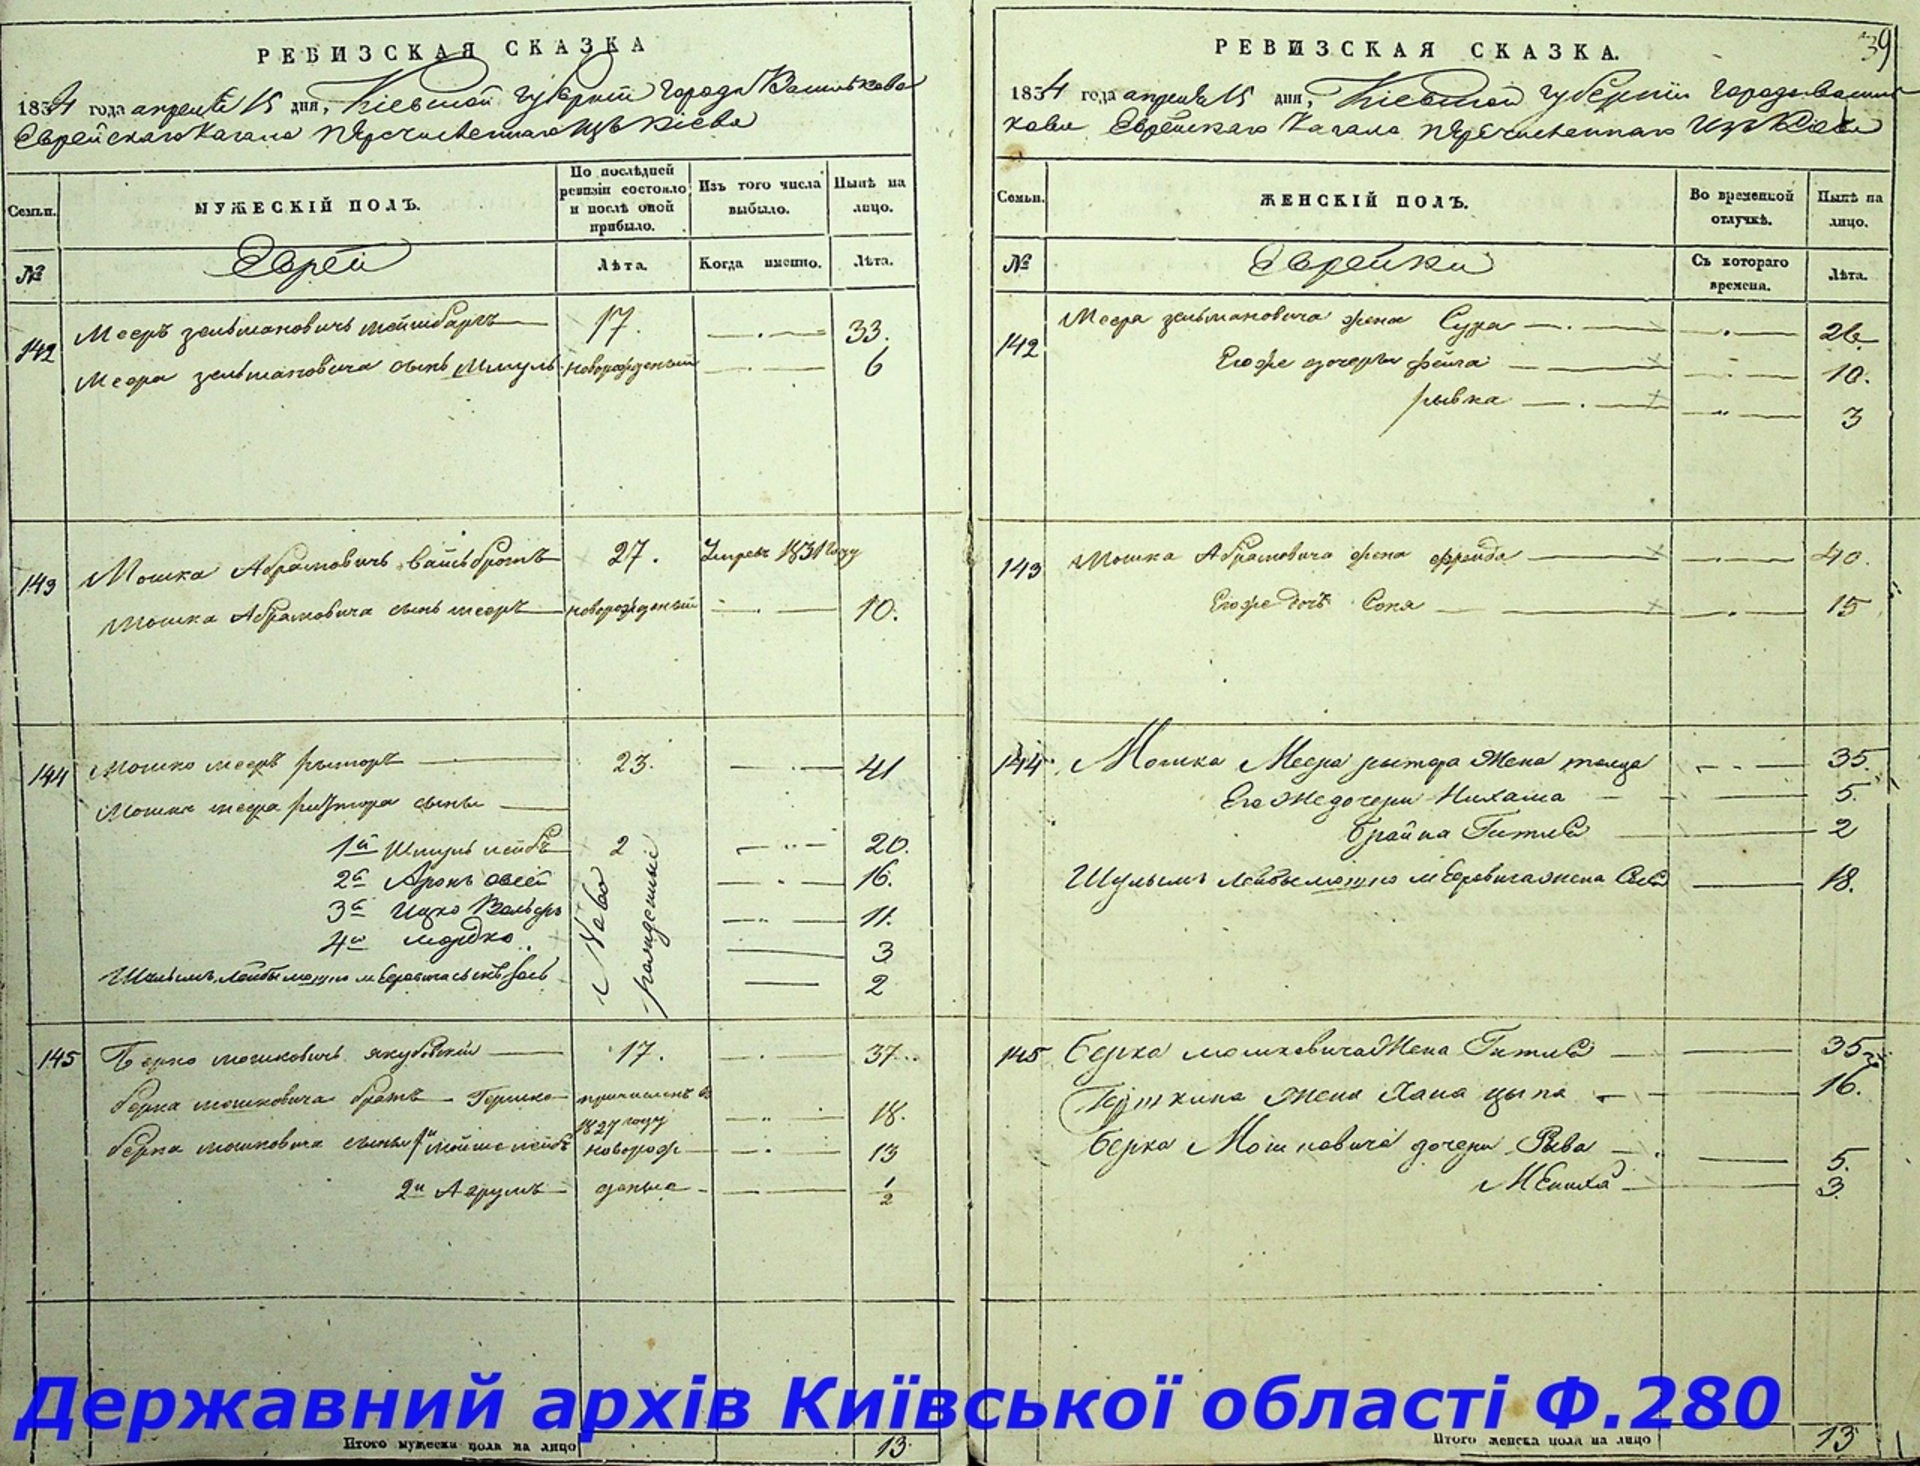 РЕВИЗСКАЯ СКАЗКА
1834 года апреля 15 дня, Кіевской губерніи города Василькова
Еврейскаго Кагала перечисленнаго изъ Кіева
Семьи.
МУЖЕСКІЙ ПОЛЪ.
По послѣдней ревизіи состояло и послѣ оной прибыло.
Изъ того числа выбыло.
Нынѣ на лицо.
№
Еврей
Лѣта.
Когда именно.
Лѣта.
142 Мееръ Зельмановичъ 17. 33.
Меера Зельмановича сынъ Шмуль новорожденый 6
143 Мошка Абрамовичъ Вайсбротъ 27. Умреъ 1831 году
Мошка Абрамовича сынъ Мееръ новорожденый 10.
144 Мошко Мееръ рыторъ 23. 41
Мошки Меера рытора сыны
1й Шмуль лейбъ 2 20.
2й Аронъ овсей 16.
3й Ицко Вольфъ 11.
4й мордко 3
2
Ново рожденные
145 Берко мошковичъ якубовскій 17. 37
берка мошковича братъ Гершко причисленъ в 1827 году 18.
берка мошковича сыны 1й мойше лейбъ новорож 13
2й Аврумъ деные 1/2
Итого мужеска пола на лицо 13
РЕВИЗСКАЯ СКАЗКА.
39
1834 года апреля 15 дня, Кіевской губерніи города Василь
кова Еврейскаго Кагала перечисленнаго изъ Кіева
Семьи.
ЖЕНСКІЙ ПОЛЪ.
Во временной отлучкѣ.
Нынѣ на лицо.
№
Еврейки
Съ котораго времени.
Лѣта.
142 Меера Зельмановича жена Сура 26
Егоже дочери фейга 10.
рывка 3
143 Мошка Абрамовича жена фрейда 40.
Егоже дочь Соня 15
144 Мошка Меера рытора Жена 35
Его Же дочери Нихама 5.
брайна Гитля 2
жена 18.
145 Берка мошковича Жена Гитля 35
Гершкина жена Хана цыпа 16.
Берка Мошковича дочери Рыва 5.
3.
Итого женска пола на лицо 13
Державний архів Київської області Ф.280